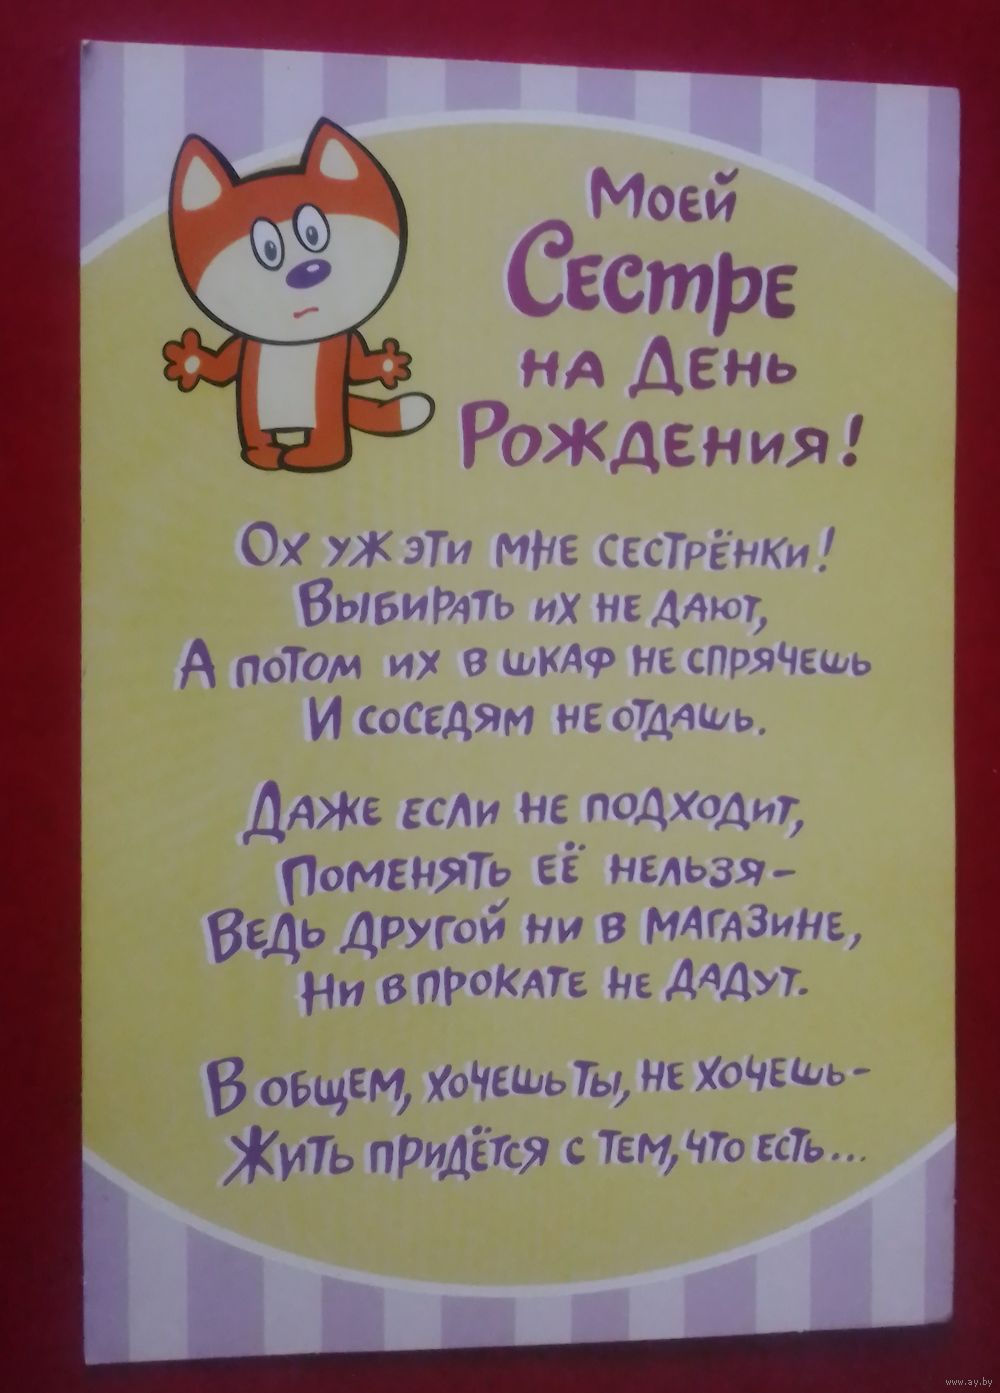 Моей
Сестре
на День
Рождения!
Ох уж эти мне сестрёнки!
Выбирать их не дают,
А потом их в шкаф не спрячешь
И соседям не отдашь.
Даже если не подходит,
Поменять её нельзя-
Ведь другой ни в магазине,
Ни в прокате не дадут.
В общем, хочешь ты, не хочешь-
Жить придётся с тем, что есть...
www.ay.by